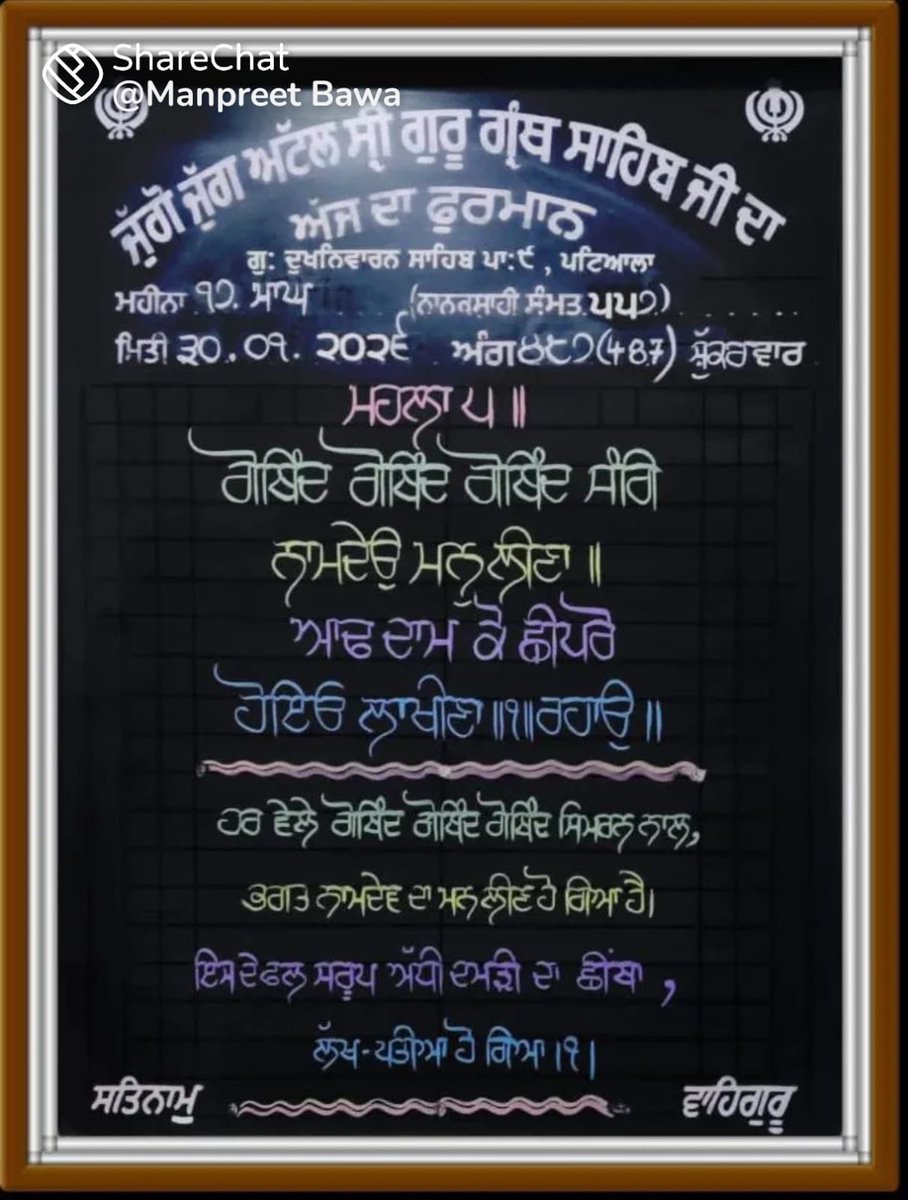 ShareChat
@Manpreet Bawa
ਜੁੱਗੋ ਜੁੱਗ ਅਟੱਲ ਸ੍ਰੀ ਗੁਰੂ ਗ੍ਰੰਥ ਸਾਹਿਬ ਜੀ ਦਾ
ਅੱਜ ਦਾ ਫੁਰਮਾਨ
ਗੁ: ਦੁਖਨਿਵਾਰਨ ਸਾਹਿਬ ਪਾ:੯ , ਪਟਿਆਲਾ
ਮਹੀਨਾ ੧੭. ਮਾਘ (ਨਾਨਕਸ਼ਾਹੀ ਸੰਮਤ ੫੫੭)
ਮਿਤੀ ੩੦.੦੧. ੨੦੨੬ ਅੰਗ ੪੮੭ (487) ਸ਼ੁੱਕਰਵਾਰ
ਮਹਲਾ ੫ ॥
ਗੋਬਿੰਦ ਗੋਬਿੰਦ ਗੋਬਿੰਦ ਸੰਗਿ
ਨਾਮਦੇਉ ਮਨੁ ਲੀਣਾ ॥
ਆਢ ਦਾਮ ਕੋ ਛੀਪਰੋ
ਹੋਇਓ ਲਾਖੀਣਾ ॥੧॥ ਰਹਾਉ ॥
ਹਰ ਵੇਲੇ ਗੋਬਿੰਦ ਗੋਬਿੰਦ ਗੋਬਿੰਦ ਸਿਮਰਨ ਨਾਲ,
ਭਗਤ ਨਾਮਦੇਵ ਦਾ ਮਨ ਲੀਣ ਹੋ ਗਿਆ ਹੈ।
ਇਸ ਦੇ ਫਲ ਸਰੂਪ ਅੱਧੀ ਦਮੜੀ ਦਾ ਛੀਂਬਾ ,
ਲੱਖ-ਪਤੀਆ ਹੋ ਗਿਆ ।੧।
ਸਤਿਨਾਮੁ
ਵਾਹਿਗੁਰੂ